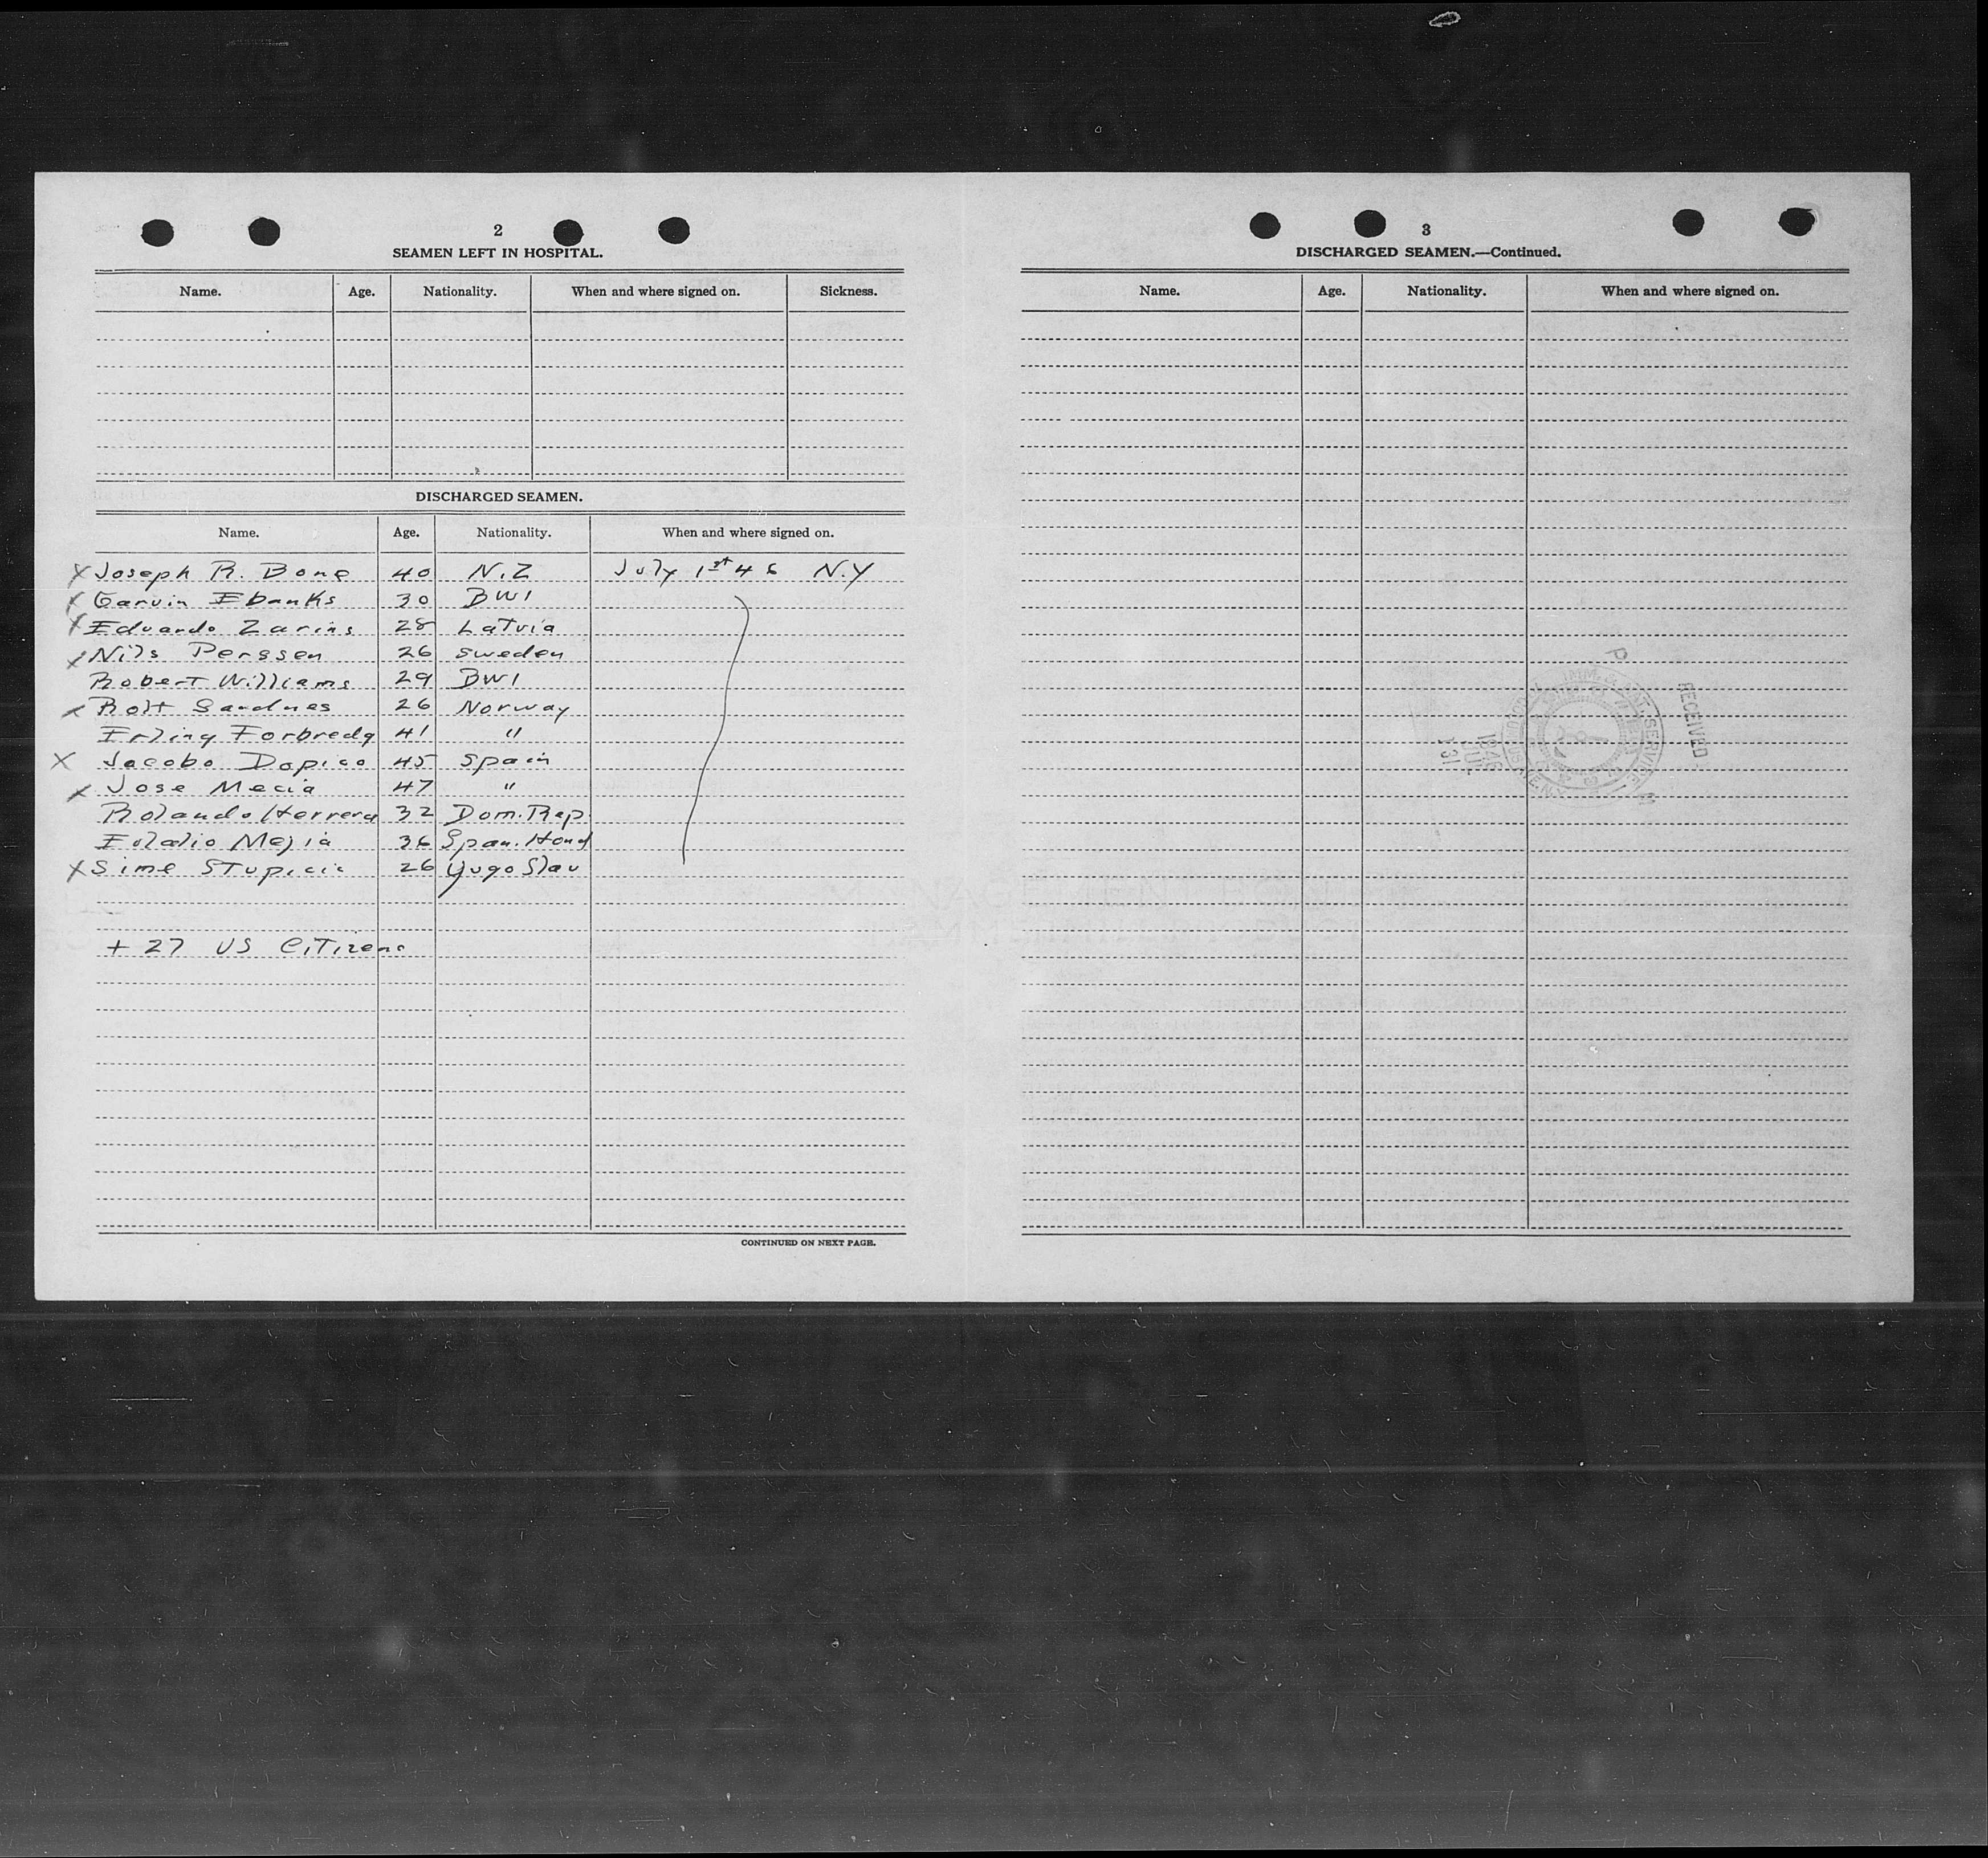 2
SEAMEN LEFT IN HOSPITAL.
Name. Age. Nationality. When and where signed on. Sickness.
DISCHARGED SEAMEN.
Name. Age. Nationality. When and where signed on.
X Joseph R. Bone 40 N.Z July 1st 46 N.Y
X Garvin Ebanks 30 BWI
X Eduardo Zarins 28 Latvia
X Nils Perssen 26 Sweden
Robert Williams 29 BWI
X Rolf Sandnes 26 Norway
Erling Forbredg 41 "
X Jacobo Dopico 45 Spain
X Jose Mecia 47 "
Rolando Herrera 32 Dom. Rep.
Eulalio Mejia 36 Span. Hond
X Sime Stupicic 26 Yugo Slav
+ 27 US CiTizens
CONTINUED ON NEXT PAGE.
3
DISCHARGED SEAMEN.—Continued.
Name. Age. Nationality. When and where signed on.
RECEIVED
1946
JUL
31